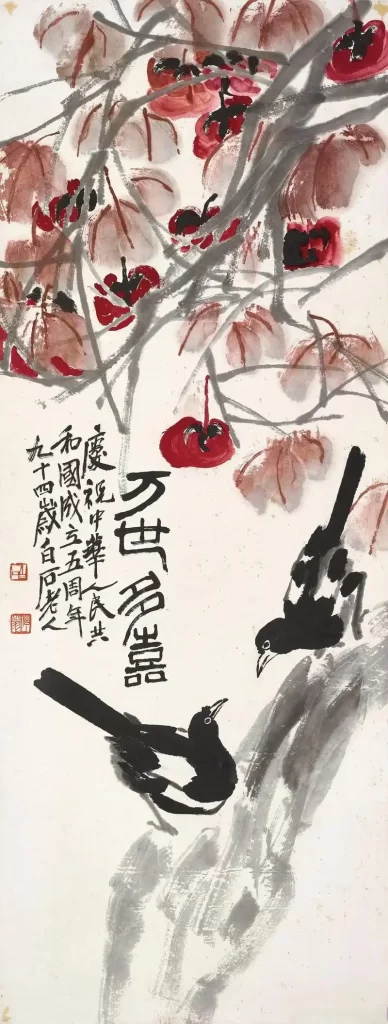 万世多喜
慶祝中華人民共
和國成立五周年
九十四歲白石老人